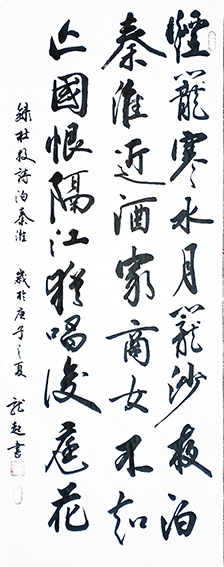 煙籠寒水月籠沙夜泊
秦淮近酒家商女不知
亡國恨隔江猶唱後庭花
録杜牧詩泊秦淮 歲於庚子之夏 龍起書